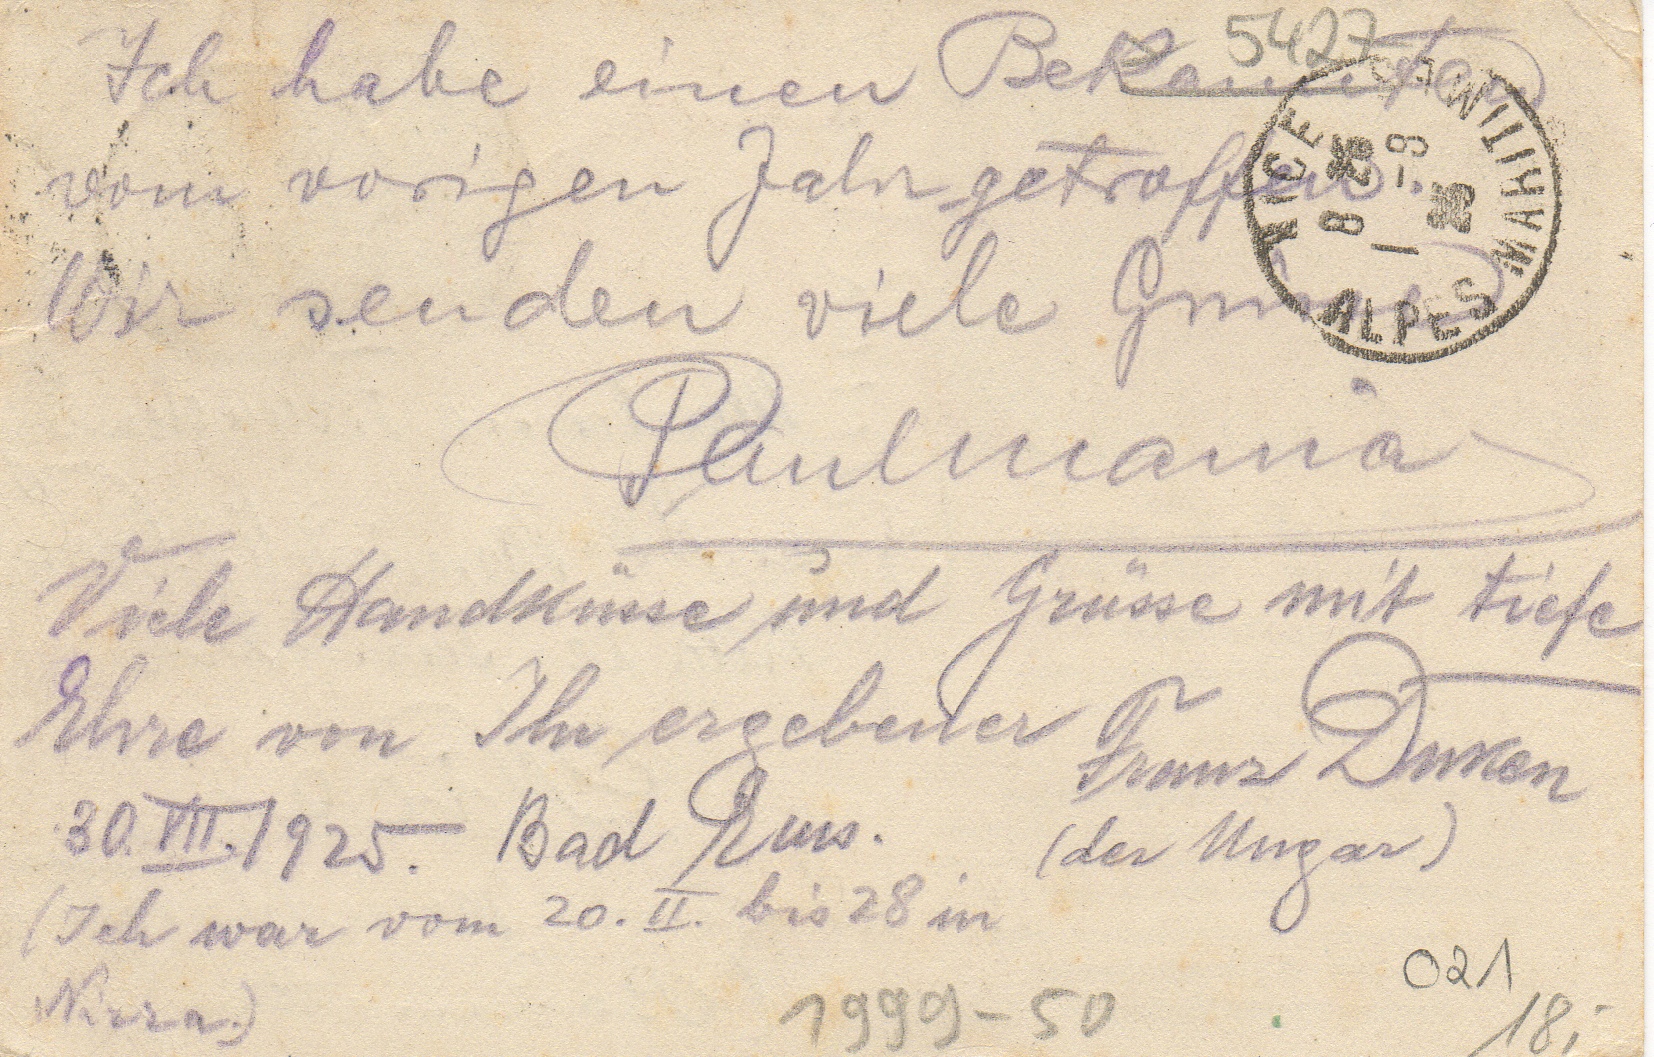 5427
Ich habe einen Bekannten
vom vorigen Jahr getroffen.
Wir senden viele Grüsse
Paulmania
Viele Handküsse und Grüsse mit tiefe
Ehre von Ihr ergebener Franz
30.VII.1925. Bad Ems. (der Ungar)
(Ich war vom 20. II. bis 28 in
Nizza.)
NICE
ALPES MARITIMES
8 25
1-9
25
1999-50
021
18,-